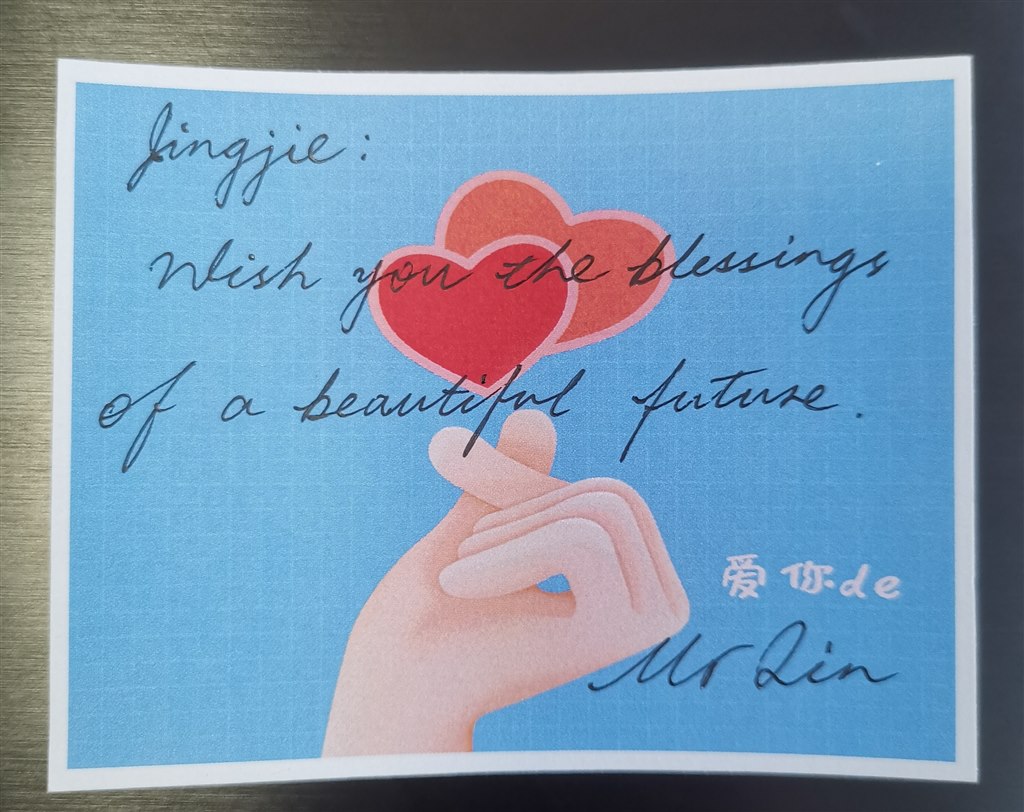 Jingjie:
Wish you the blessings
of a beautiful future.
爱你de
Mr Qin